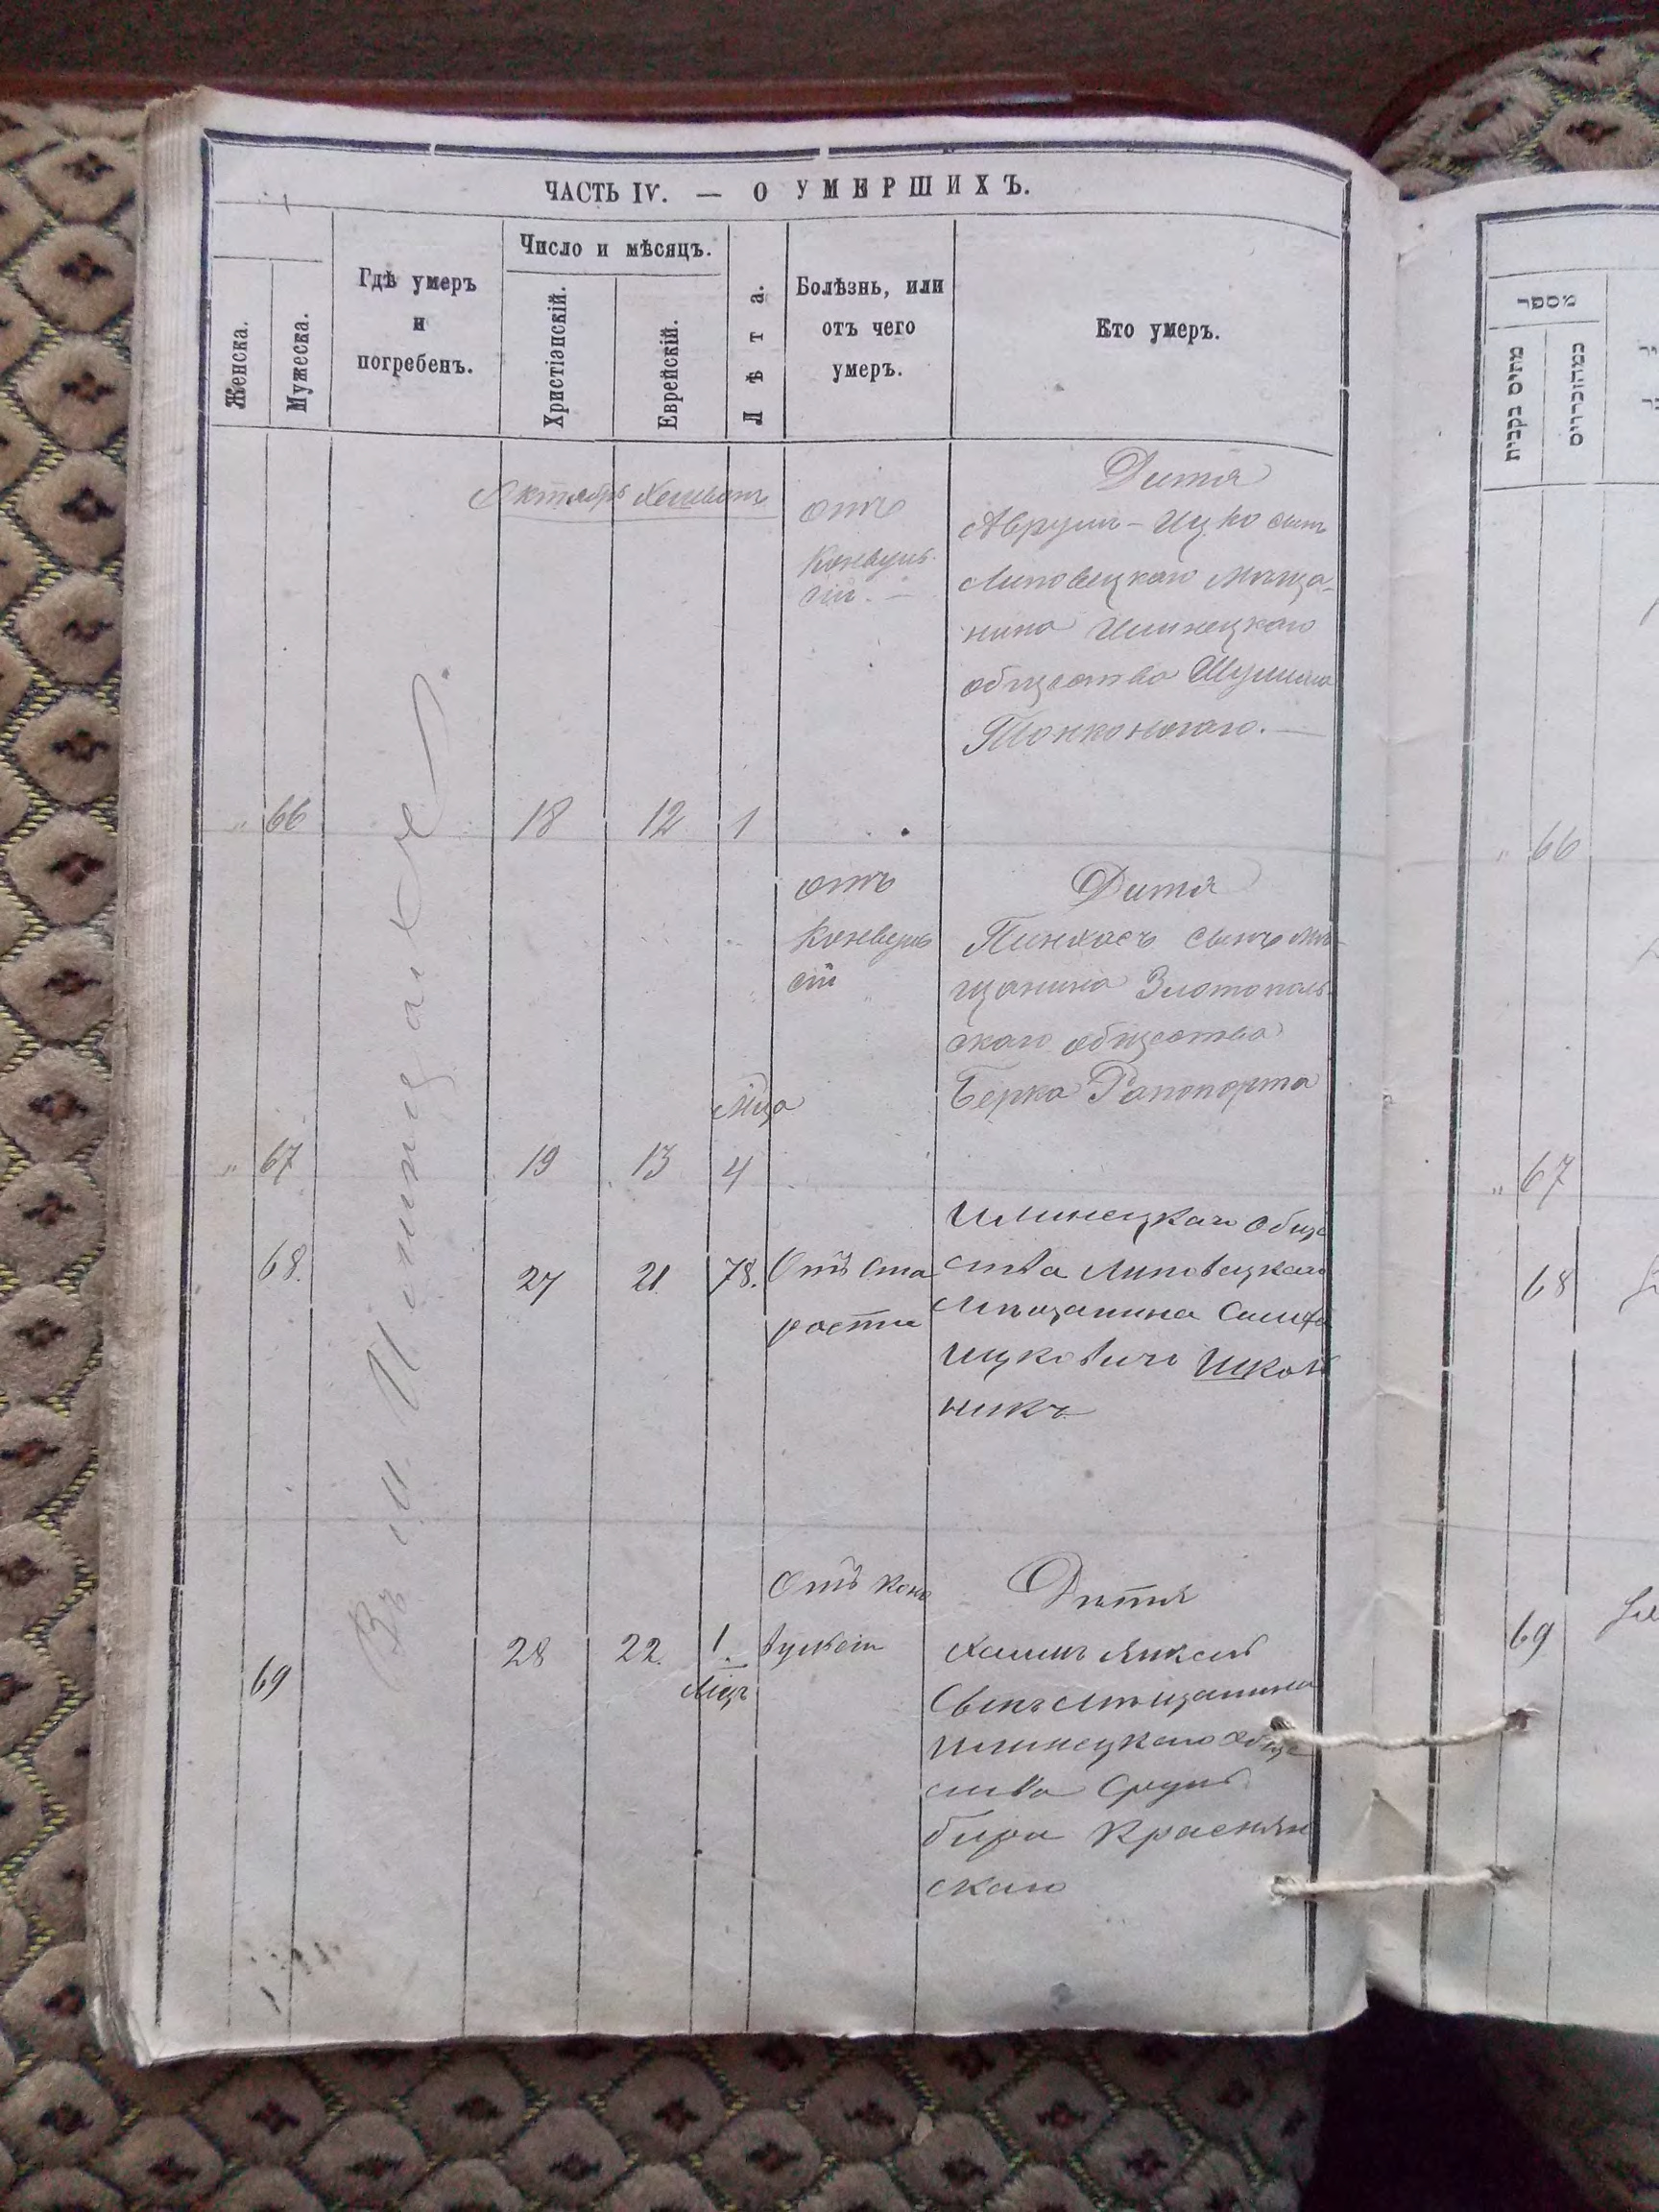 ЧАСТЬ IV. — О УМЕРШИХЪ.
Женска.
Мужеска.
Гдѣ умеръ
и
погребенъ.
Число и мѣсяцъ.
Христіанскій.
Еврейскій.
Лѣта.
Болѣзнь, или
отъ чего
умеръ.
Кто умеръ.
Въ м. Ильинцахъ
Октябрь Хешванъ
" 66 18 12 1
отъ
Конвуль-
сій. —
Дитя
Аврумъ-Ицко сынъ
Липовецкаго мѣща-
нина Илинецкаго
общества Шулима
Тонконогаго. —
" 67 19 13 Мца 4
отъ
Конвуль
сій
Дитя
Пинхасъ сынъ мѣ-
щанина Златополь-
скаго общества
Берка Рапопорта
68. 27 21 78.
Отъ ста
рости
Илинецкаго обще
ства Липовецкаго
Мѣщанина
Ицковичъ Школь
никъ
69 28 22. 1. Мсцъ
Отъ кон
вулсіи
Дѣтя
Хаимъ
Сынъ мѣщанина
Илинецкаго обще
ства Сруль
бира Краснян
скаго
מספר
66
" 67
68
69